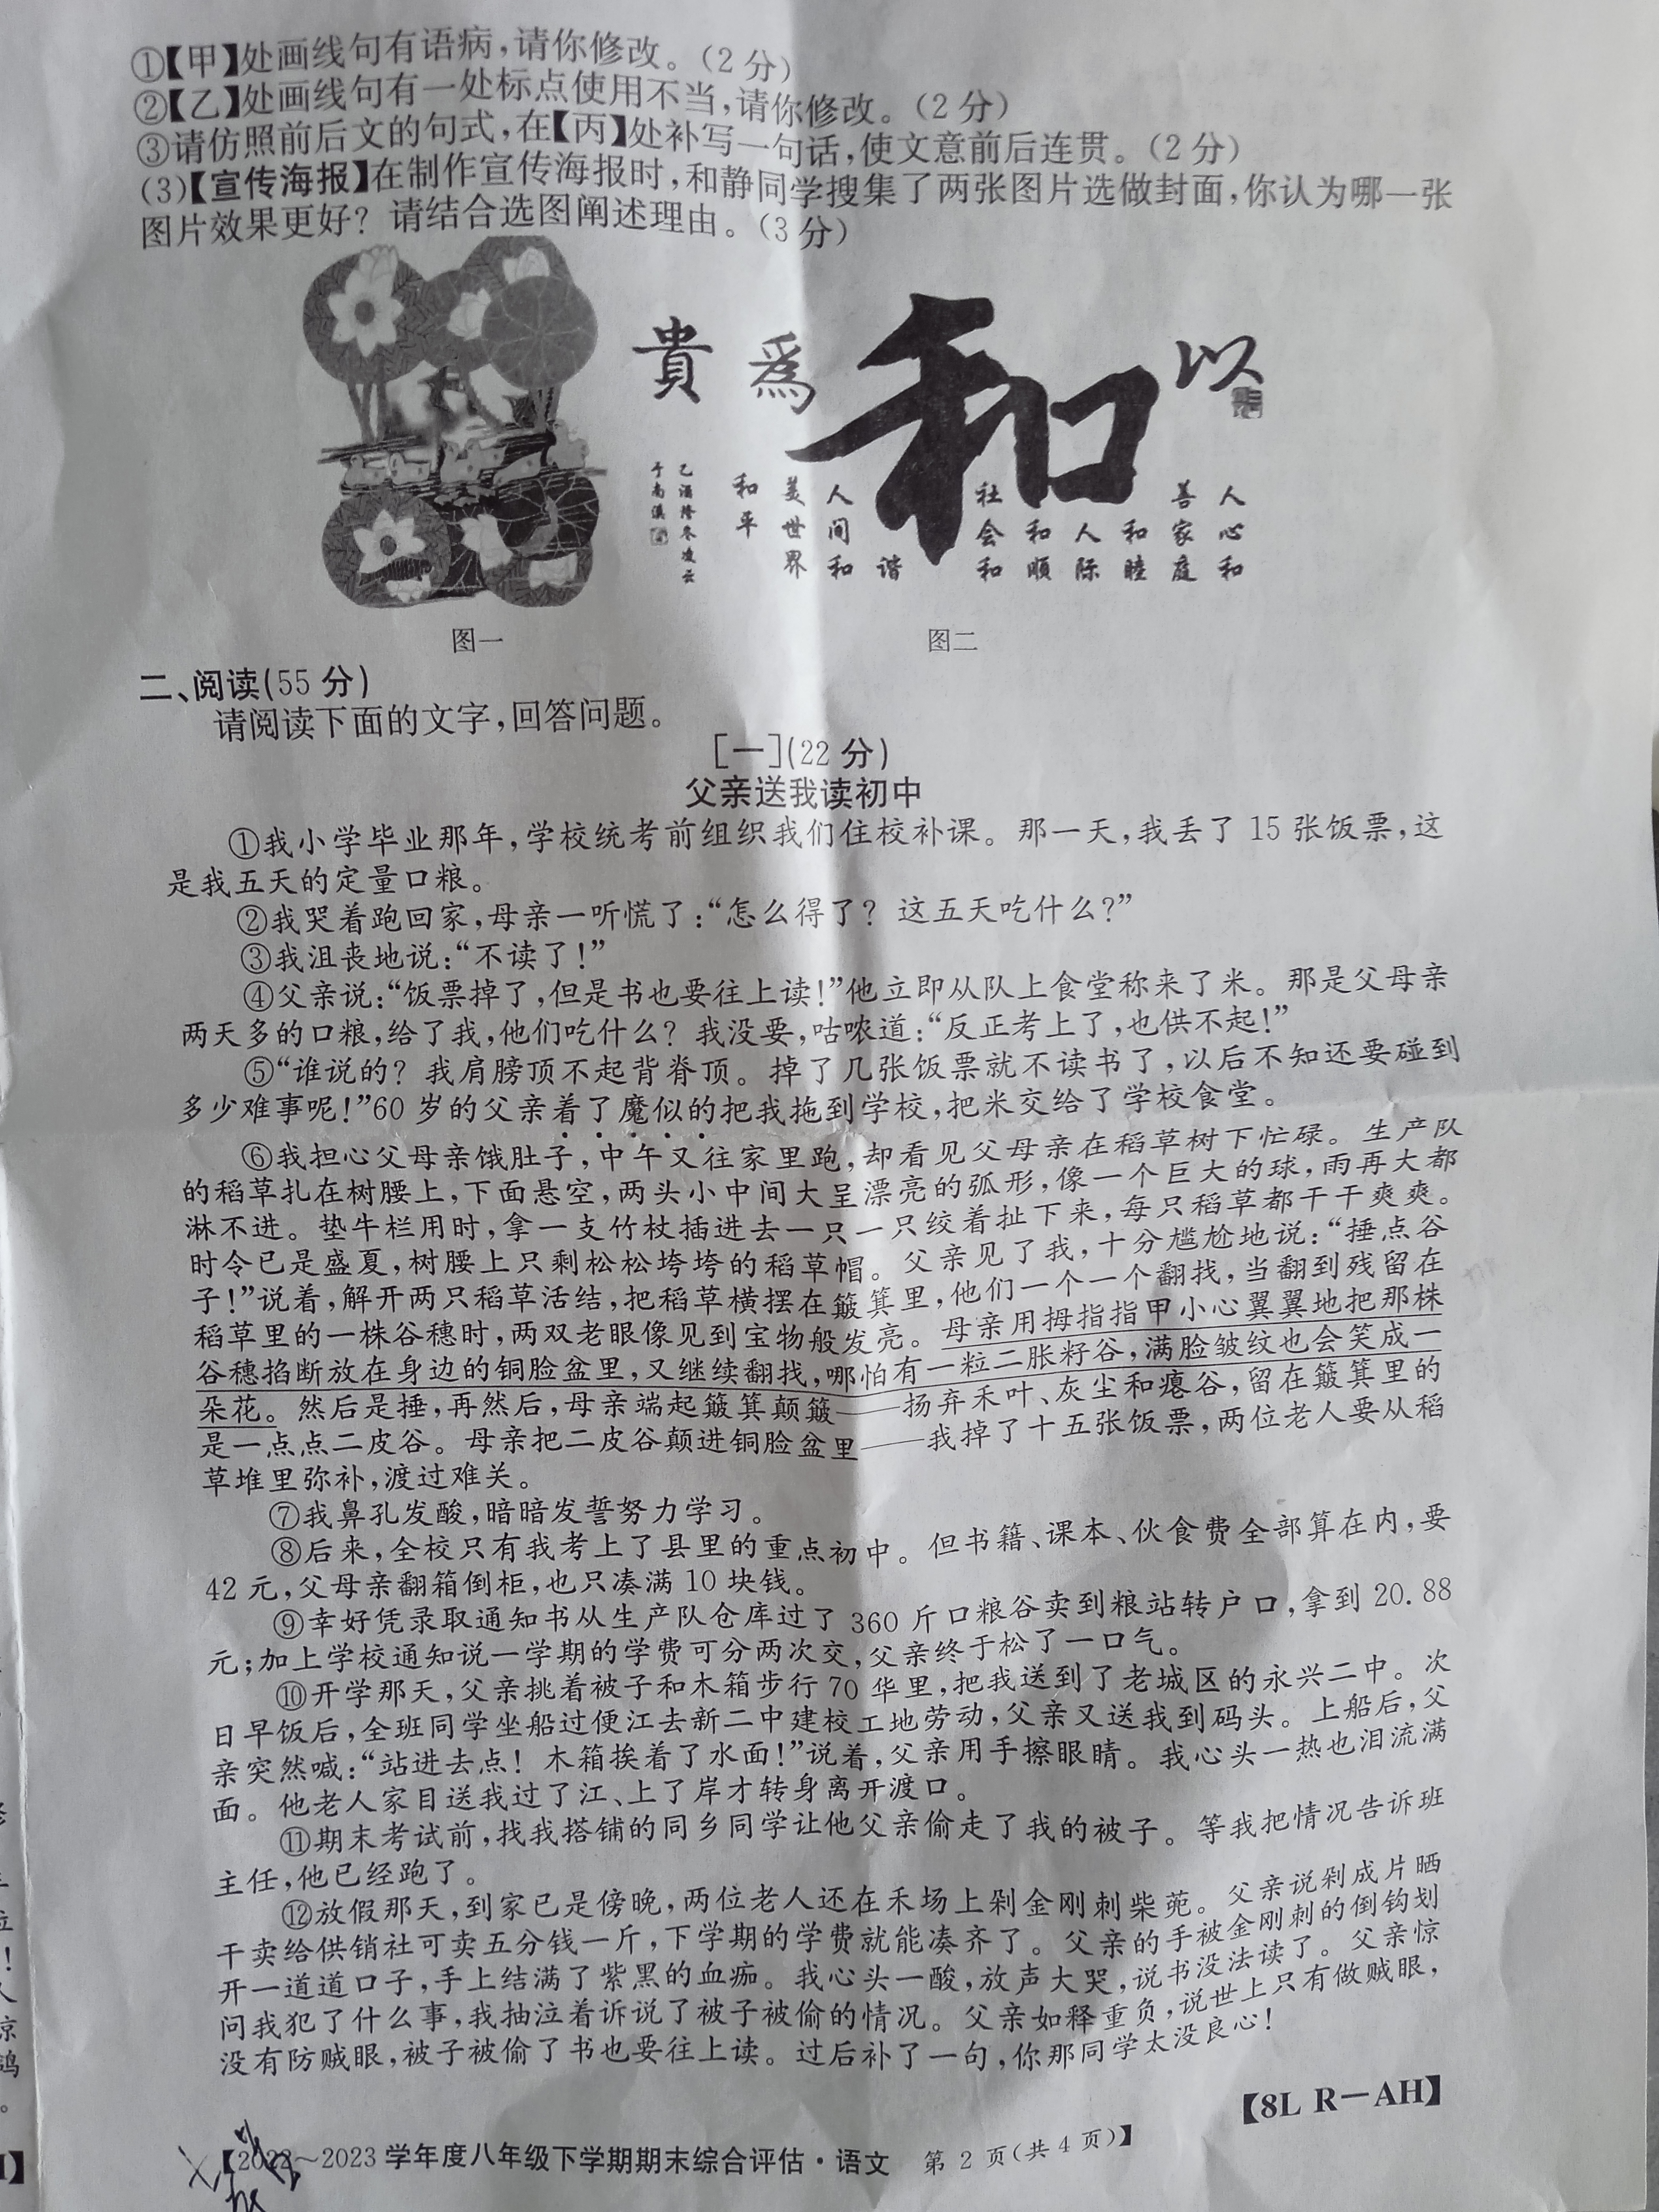 ①【甲】处画线句有语病,请你修改。(2分)
②【乙】处画线句有一处标点使用不当,请你修改。(2分)
③请仿照前后文的句式,在【丙】处补写一句话,使文意前后连贯。(2分)
(3)【宣传海报】在制作宣传海报时,和静同学搜集了两张图片选做封面,你认为哪一张
图片效果更好? 请结合选图阐述理由。(3分)
以
和
爲
貴
人心和
善家庭
和睦
人际
和順
社会和
谐
人间和
美世界
和平
图一
图二
二、阅读(55分)
请阅读下面的文字,回答问题。
[一](22分)
父亲送我读初中
①我小学毕业那年,学校统考前组织我们住校补课。那一天,我丢了15张饭票,这
是我五天的定量口粮。
②我哭着跑回家,母亲一听慌了:“怎么得了? 这五天吃什么?”
③我沮丧地说:“不读了!”
④父亲说:“饭票掉了,但是书也要往上读!”他立即从队上食堂称来了米。那是父母亲
两天多的口粮,给了我,他们吃什么? 我没要,咕哝道:“反正考上了,也供不起!”
⑤“谁说的? 我肩膀顶不起背脊顶。掉了几张饭票就不读书了,以后不知还要碰到
多少难事呢!”60岁的父亲着了魔似的把我拖到学校,把米交给了学校食堂。
⑥我担心父母亲饿肚子,中午又往家里跑,却看见父母亲在稻草树下忙碌。生产队
的稻草扎在树腰上,下面悬空,两头小中间大呈漂亮的弧形,像一个巨大的球,雨再大都
淋不进。垫牛栏用时,拿一支竹杖插进去一只一只绞着扯下来,每只稻草都干干爽爽。
时令已是盛夏,树腰上只剩松松垮垮的稻草帽。父亲见了我,十分尴尬地说:“捶点谷
子!”说着,解开两只稻草活结,把稻草横摆在簸箕里,他们一个一个翻找,当翻到残留在
稻草里的一株谷穗时,两双老眼像见到宝物般发亮。母亲用拇指指甲小心翼翼地把那株
谷穗掐断放在身边的铜脸盆里,又继续翻找,哪怕有一粒二胀籽谷,满脸皱纹也会笑成一
朵花。然后是捶,再然后,母亲端起簸箕颠簸——扬弃禾叶、灰尘和瘪谷,留在簸箕里的
是一点点二皮谷。母亲把二皮谷颠进铜脸盆里——我掉了十五张饭票,两位老人要从稻
草堆里弥补,渡过难关。
⑦我鼻孔发酸,暗暗发誓努力学习。
⑧后来,全校只有我考上了县里的重点初中。但书籍、课本、伙食费全部算在内,要
42元,父母亲翻箱倒柜,也只凑满10块钱。
⑨幸好凭录取通知书从生产队仓库过了360斤口粮谷卖到粮站转户口,拿到20.88
元;加上学校通知说一学期的学费可分两次交,父亲终于松了一口气。
⑩开学那天,父亲挑着被子和木箱步行70华里,把我送到了老城区的永兴二中。次
日早饭后,全班同学坐船过便江去新二中建校工地劳动,父亲又送我到码头。上船后,父
亲突然喊:“站进去点! 木箱挨着了水面!”说着,父亲用手擦眼睛。我心头一热也泪流满
面。他老人家目送我过了江、上了岸才转身离开渡口。
⑪期末考试前,找我搭铺的同乡同学让他父亲偷走了我的被子。等我把情况告诉班
主任,他已经跑了。
⑫放假那天,到家已是傍晚,两位老人还在禾场上剁金刚刺柴蔸。父亲说剁成片晒
干卖给供销社可卖五分钱一斤,下学期的学费就能凑齐了。父亲的手被金刚刺的倒钩划
开一道道口子,手上结满了紫黑的血痂。我心头一酸,放声大哭,说书没法读了。父亲惊
问我犯了什么事,我抽泣着诉说了被子被偷的情况。父亲如释重负,说世上只有做贼眼,
没有防贼眼,被子被偷了书也要往上读。过后补了一句,你那同学太没良心!
【8L R－AH】
【2022～2023学年度八年级下学期期末综合评估·语文 第2页(共4页)】